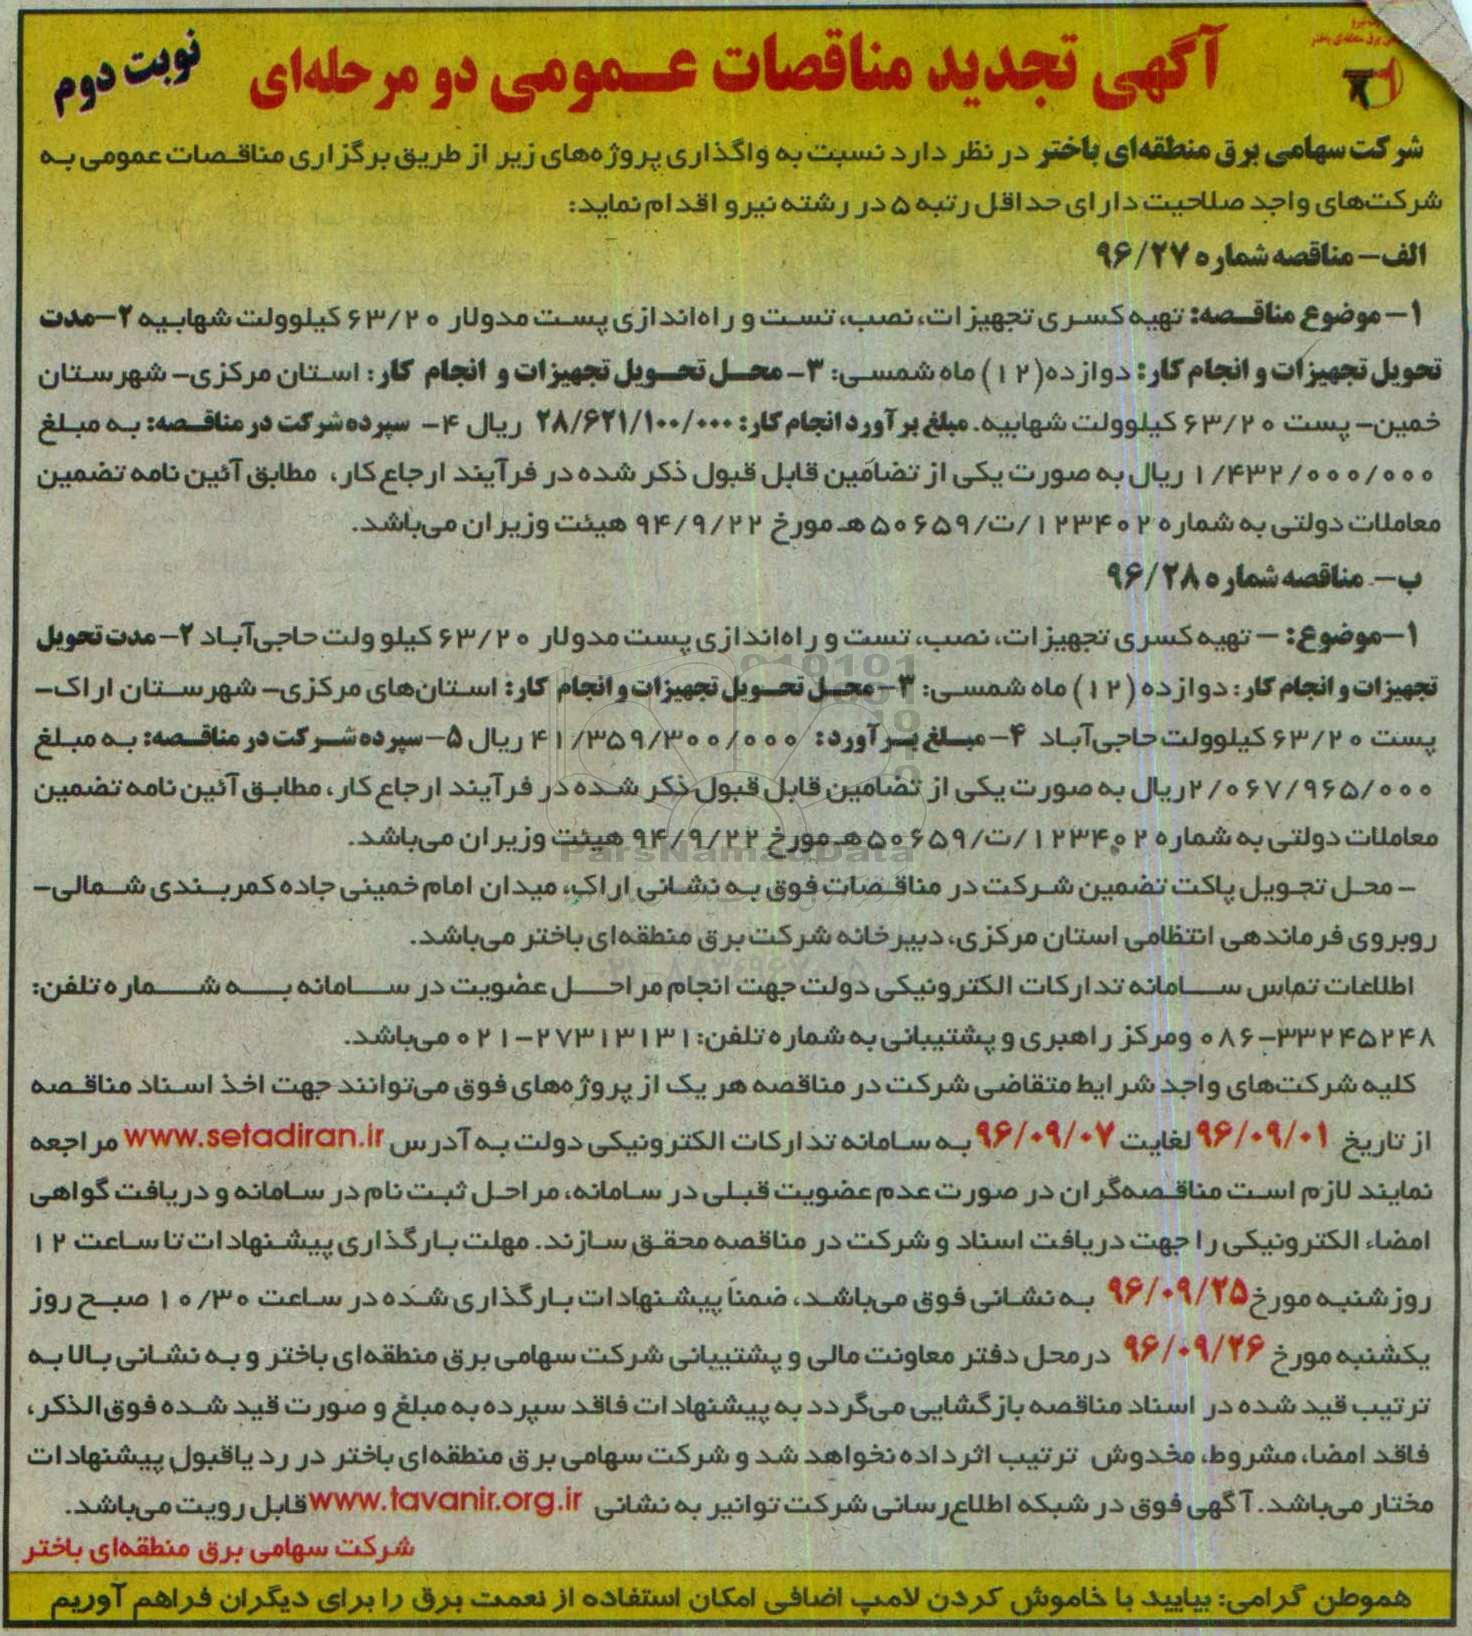 آگهی تجدید مناقصات عمومی دو مرحله‌ای
نوبت دوم
شرکت سهامی برق منطقه‌ای باختر در نظر دارد نسبت به واگذاری پروژه‌های زیر از طریق برگزاری مناقصات عمومی به
شرکت‌های واجد صلاحیت دارای حداقل رتبه ۵ در رشته نیرو اقدام نماید:
الف- مناقصه شماره ۹۶/۲۷
۱- موضوع مناقصه: تهیه کسری تجهیزات، نصب، تست و راه‌اندازی پست مدولار ۶۳/۲۰ کیلوولت شهابیه ۲-مدت
تحویل تجهیزات و انجام کار: دوازده(۱۲) ماه شمسی: ۳- محل تحویل تجهیزات و انجام کار: استان مرکزی- شهرستان
خمین- پست ۶۳/۲۰ کیلوولت شهابیه. مبلغ برآورد انجام کار: ۲۸/۶۲۱/۱۰۰/۰۰۰ ریال ۴- سپرده شرکت در مناقصه: به مبلغ
۱/۴۳۲/۰۰۰/۰۰۰ ریال به صورت یکی از تضامین قابل قبول ذکر شده در فرآیند ارجاع کار، مطابق آئین نامه تضمین
معاملات دولتی به شماره ۱۲۳۴۰۲/ت/۵۰۶۵۹هـ مورخ ۹۴/۹/۲۲ هیئت وزیران می‌باشد.
ب- مناقصه شماره ۹۶/۲۸
۱-موضوع: - تهیه کسری تجهیزات، نصب، تست و راه‌اندازی پست مدولار ۶۳/۲۰ کیلو ولت حاجی‌آباد ۲- مدت تحویل
تجهیزات و انجام کار: دوازده (۱۲) ماه شمسی: ۳-محل تحویل تجهیزات و انجام کار: استان‌های مرکزی- شهرستان اراک-
پست ۶۳/۲۰ کیلوولت حاجی‌آباد ۴- مبلغ برآورد: ۴۱/۳۵۹/۳۰۰/۰۰۰ ریال ۵-سپرده شرکت در مناقصه: به مبلغ
۲/۰۶۷/۹۶۵/۰۰۰ریال به صورت یکی از تضامین قابل قبول ذکر شده در فرآیند ارجاع کار، مطابق آئین نامه تضمین
معاملات دولتی به شماره ۱۲۳۴۰۲/ت/۵۰۶۵۹هـ مورخ ۹۴/۹/۲۲ هیئت وزیران می‌باشد.
ParsNamadData
- محل تحویل پاکت تضمین شرکت در مناقصات فوق به نشانی اراک، میدان امام خمینی جاده کمربندی شمالی-
روبروی فرماندهی انتظامی استان مرکزی، دبیرخانه شرکت برق منطقه‌ای باختر می‌باشد.
اطلاعات تماس سامانه تدارکات الکترونیکی دولت جهت انجام مراحل عضویت در سامانه به شماره تلفن:
۰۸۶-۳۳۲۴۵۲۴۸ ومرکز راهبری و پشتیبانی به شماره تلفن: ۰۲۱-۲۷۳۱۳۱۳۱ می‌باشد.
کلیه شرکت‌های واجد شرایط متقاضی شرکت در مناقصه هر یک از پروژه‌های فوق می‌توانند جهت اخذ اسناد مناقصه
از تاریخ ۹۶/۰۹/۰۱ لغایت ۹۶/۰۹/۰۷ به سامانه تدارکات الکترونیکی دولت به آدرس www.setadiran.ir مراجعه
نمایند لازم است مناقصه‌گران در صورت عدم عضویت قبلی در سامانه، مراحل ثبت نام در سامانه و دریافت گواهی
امضاء الکترونیکی را جهت دریافت اسناد و شرکت در مناقصه محقق سازند. مهلت بارگذاری پیشنهادات تا ساعت ۱۲
روز شنبه مورخ ۹۶/۰۹/۲۵ به نشانی فوق می‌باشد، ضمناً پیشنهادات بارگذاری شده در ساعت ۱۰/۳۰ صبح روز
یکشنبه مورخ ۹۶/۰۹/۲۶ درمحل دفتر معاونت مالی و پشتیبانی شرکت سهامی برق منطقه‌ای باختر و به نشانی بالا به
ترتیب قید شده در اسناد مناقصه بازگشایی می‌گردد به پیشنهادات فاقد سپرده به مبلغ و صورت قید شده فوق‌الذکر،
فاقد امضا، مشروط، مخدوش ترتیب اثر داده نخواهد شد و شرکت سهامی برق منطقه‌ای باختر در رد یاقبول پیشنهادات
مختار می‌باشد. آگهی فوق در شبکه اطلاع‌رسانی شرکت توانیر به نشانی www.tavanir.org.ir قابل رویت می‌باشد.
شرکت سهامی برق منطقه‌ای باختر
هموطن گرامی: بیایید با خاموش کردن لامپ اضافی امکان استفاده از نعمت برق را برای دیگران فراهم آوریم